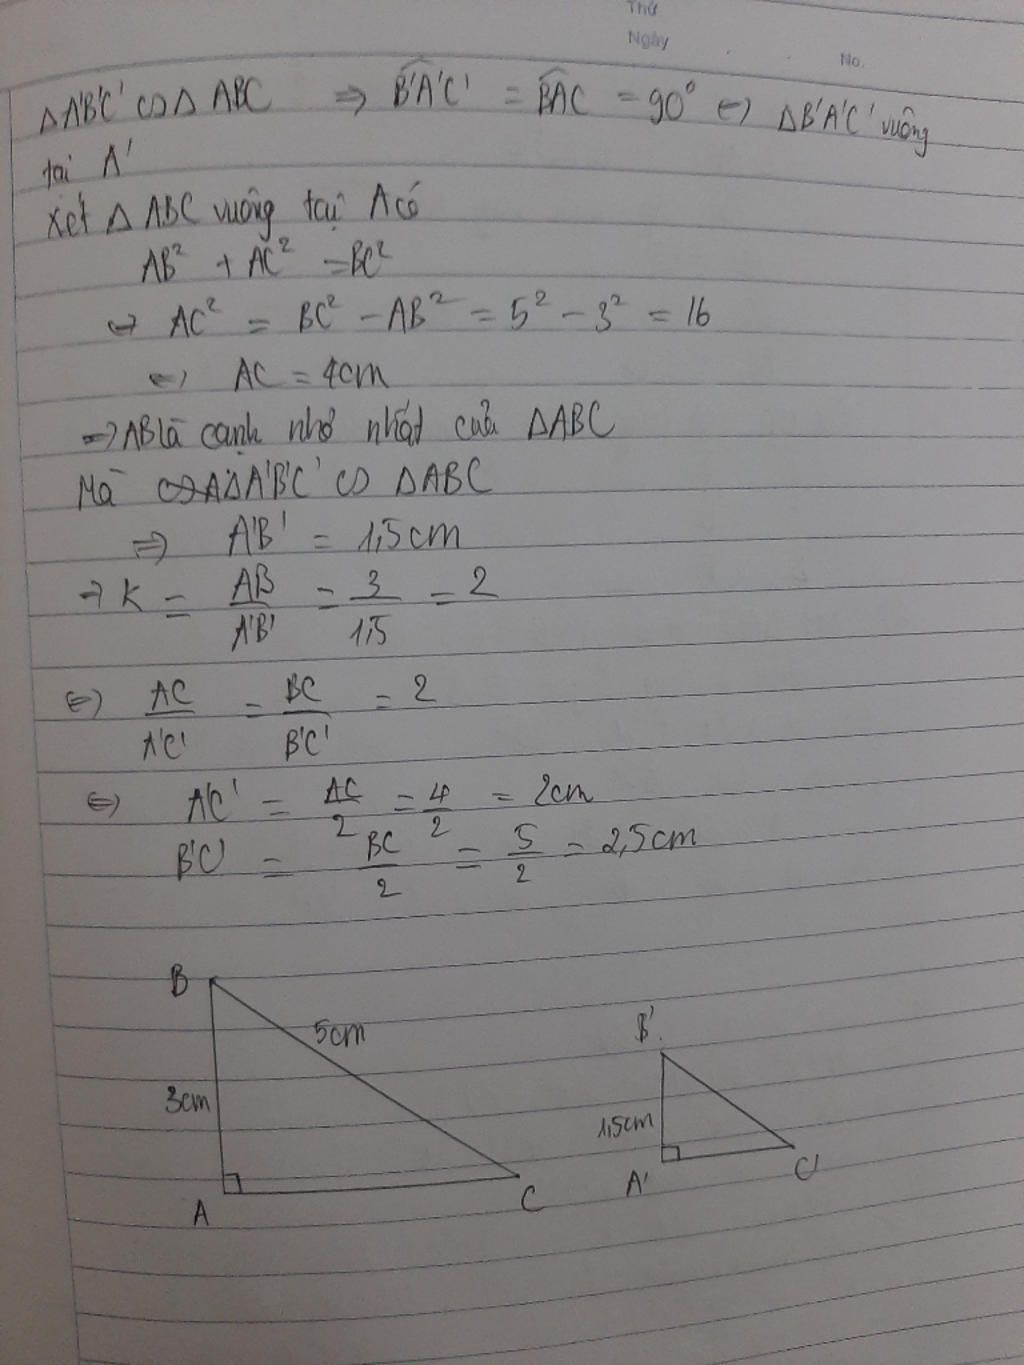 Thứ
Ngày
No.
ΔA'B'C' ∽ Δ ABC ⇒ B'A'C' = BAC = 90° ⇔ ΔB'A'C' vuông
tại A'
Xét Δ ABC vuông tại A có
AB² + AC² = BC²
⇔ AC² = BC² - AB² = 5² - 3² = 16
⇔ AC = 4cm
⇒ AB là cạnh nhỏ nhất của ΔABC
Mà ΔA'B'C' ∽ ΔABC
⇒ A'B' = 1,5cm
→ K = AB/A'B' = 3/1,5 = 2
⇔ AC/A'C' = BC/B'C' = 2
⇔ A'C' = AC/2 = 4/2 = 2cm
B'C' = BC/2 = 5/2 = 2,5cm
B
5cm
B'
3cm
1,5cm
A
C
A'
C'